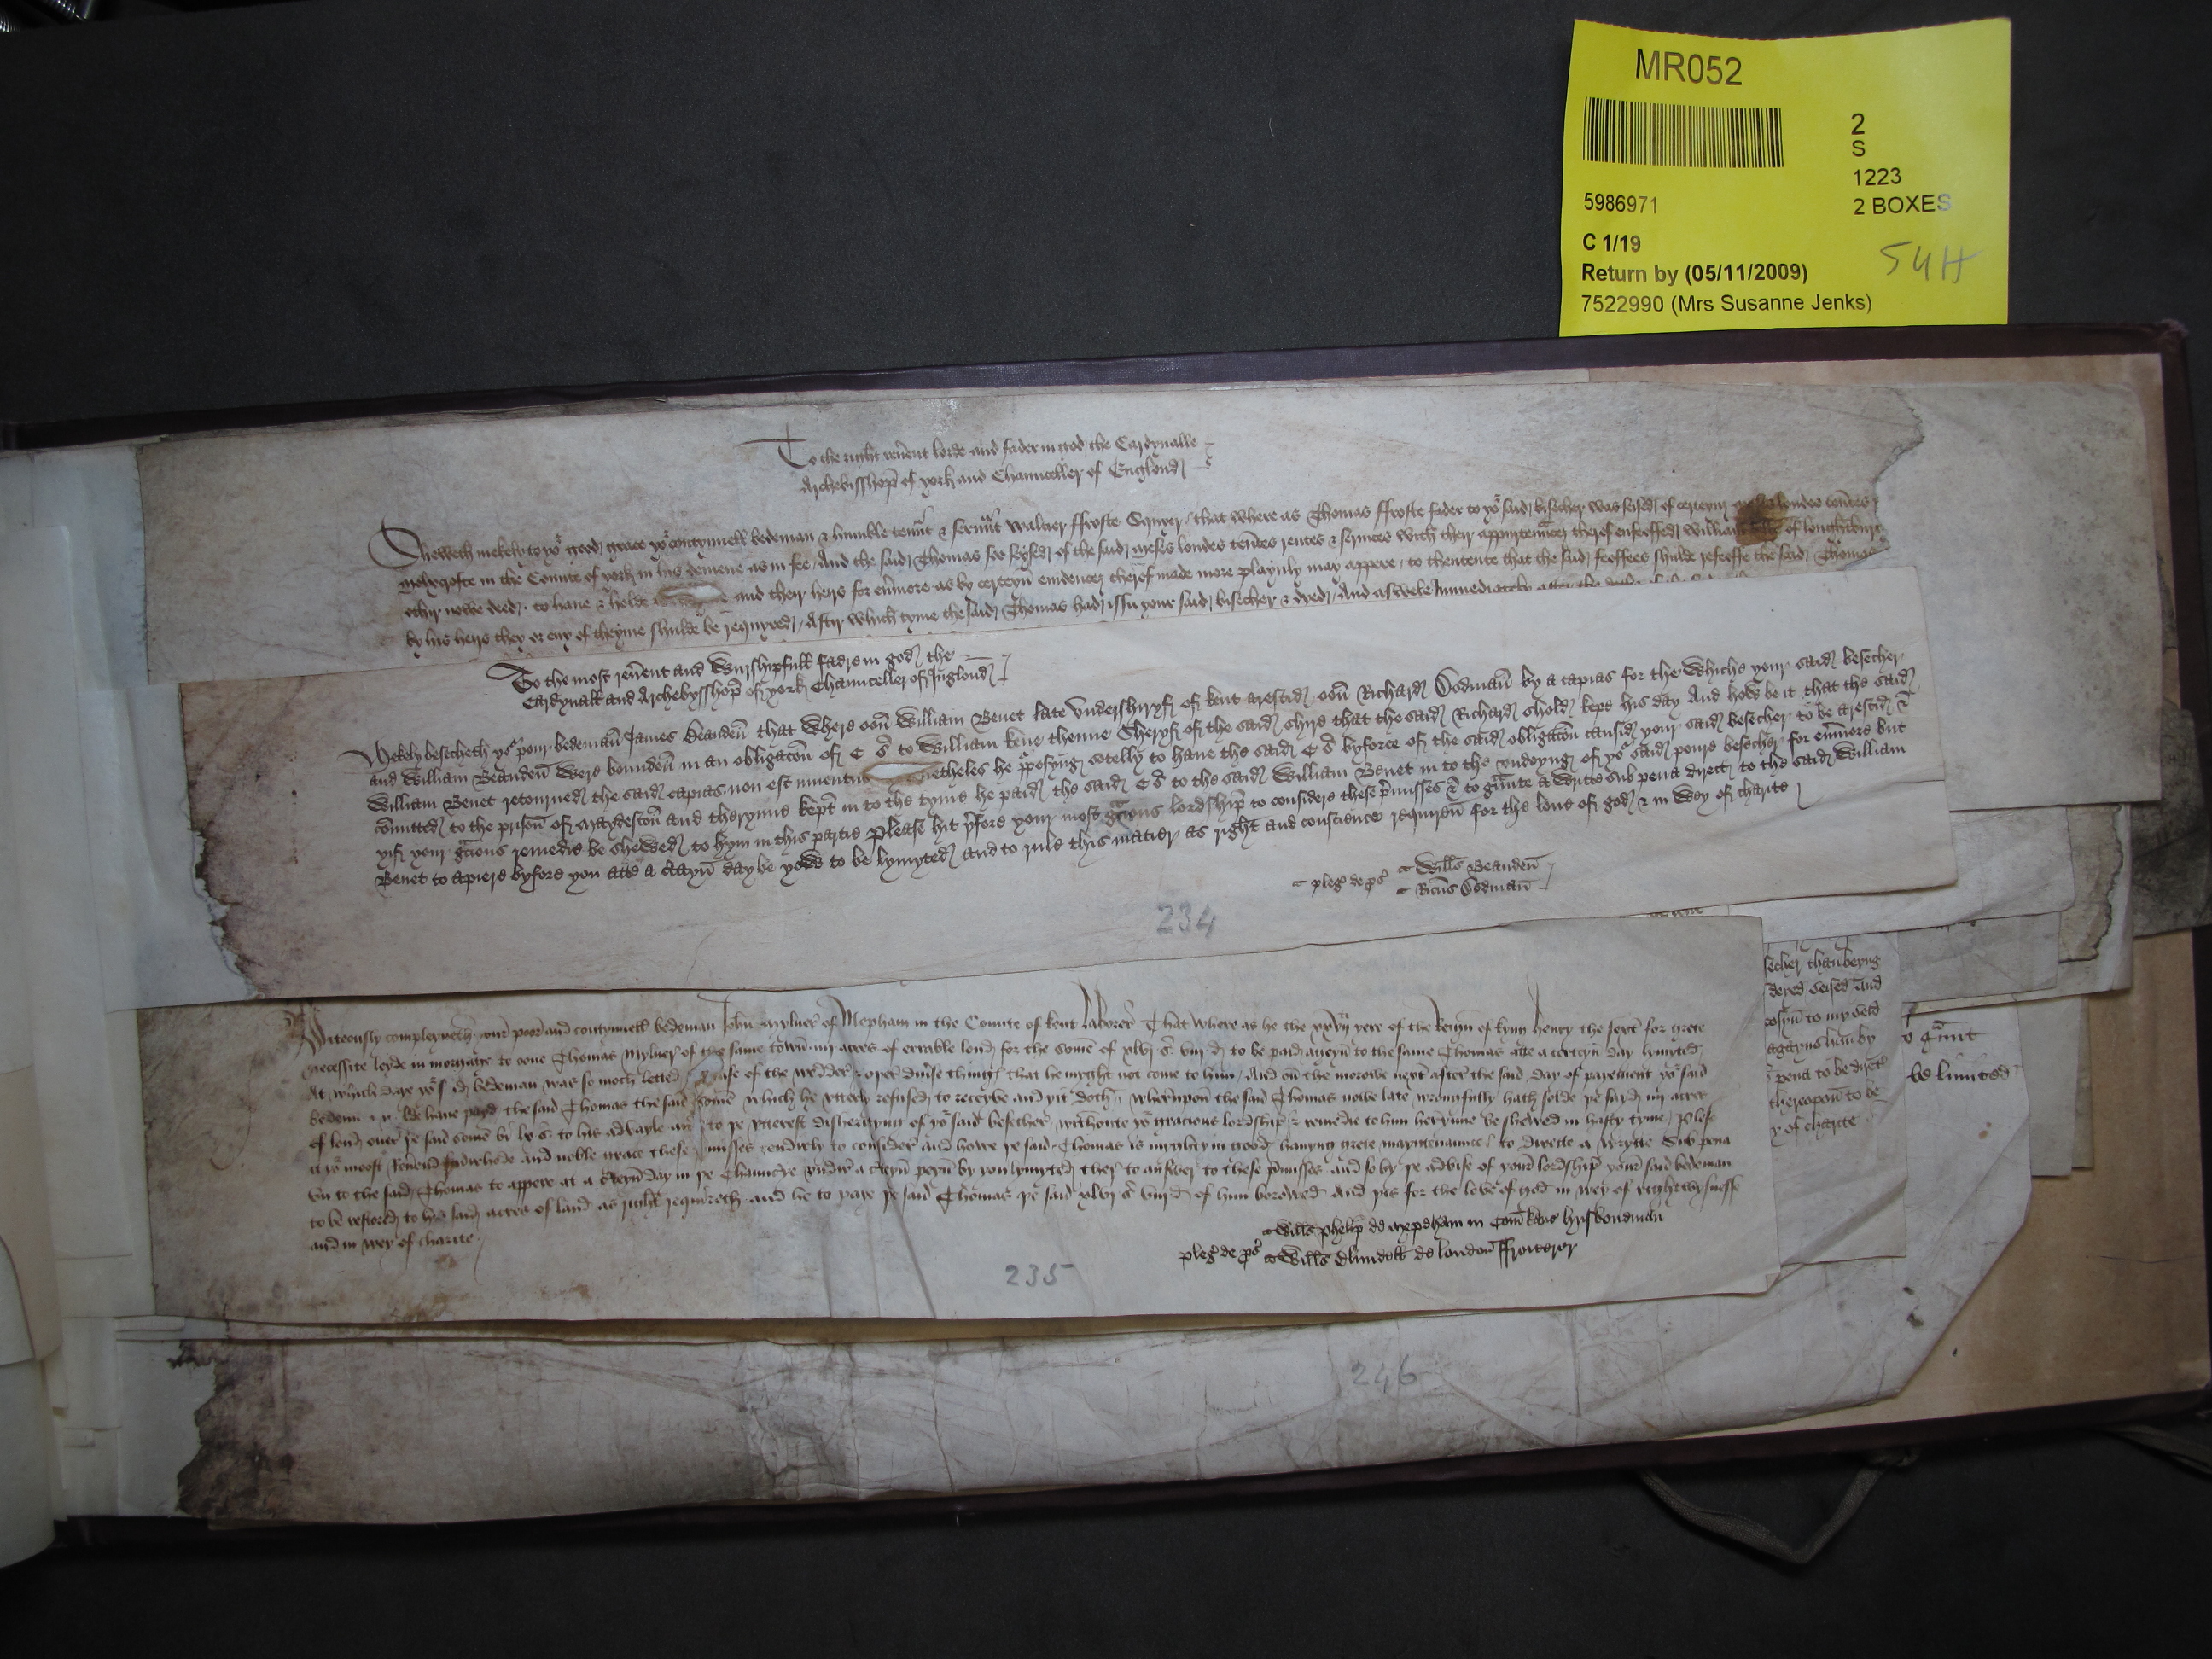 MR052
2
S
1223
2 BOXES
5986971
C 1/19
Return by (05/11/2009)
54H
7522990 (Mrs Susanne Jenks)
To the right reu'ent lorde and fader in god the Cardynalle
Archebisshop of york and Chaunceller of Englond
Sheweth mekely to yor good grace yor contynuell bedeman & humble & Walter ffroste Squyer / that where as Thomas ffroste fader to yor said bisecher was seised of certeyn londes ten'tes
in the Counte of york in his demene as in fee / And the said Thomas soo seysed of the said meses londes ten'tes rentes & seruices with their appurtenances therof enfeoffed William of
othir nowe deed to haue & holde and their heirs for eu'more as by certeyn euidences therof made more playnly may appere / to thentente that the said feoffees shulde refeoffe the said Thomas
by his heirs they or eny of theyme shulde be requyred / Aftir which tyme the said Thomas had issu your said bisecher & dyed / And as wele Immediately after the
To the most reu'ent and Wurshipfull fadre in god the
Cardynall and Archebysshop of york Chaunceller of Inglond
Mekely besecheth yor pour bedeman James Beauden that Where oon William Benet late Vndershiryf of kent arestid oon Richard Dodman by a capias for the Whiche your said besecher
and William Beauden Were bounden in an obligacon of C s' to William kene thenne Sheryf of the said shire that the said Richard shold kepe his day And how be it that the said
William Benet retourned the said capias non est inuentus netheles he p'posyng sotelly to haue the said C s' by force of the said obligacon causid your said besecher to be arestid &
co'mitted to the prison of Maydeston and therynne kept in to the tyme he paid the said C s' to the said William Benet in to the vndoyng of yor said poure besecher for eu'more but
yif your gracious remedie be shewed to hym in this partie Please hit th'fore your most gracious lordship to considere these p'misses & to graunte a Writte sub pena direct to the said William
Benet to apiere byfore you atte a c'tayn day be yow to be lymyted and to rule this matier as right and conscience requiren for the loue of god & in Way of charite
pleg' de ps'
Will's Beauden
Ric'us Dodman
234
Piteously compleyneth your poor and contynuell bedeman John Mylner of Mepham in the Counte of kent laborer That where as he the xxvij yere of the Reign of kyng henry the sext for grete
necessite leyde in morgage to oone Thomas Mylner of the same town iiij acres of errable lond for the some of xlvj s' viij d' to be paid ayeyn to the same Thomas atte a certeyn day lymyted
At which daye yor s id bedeman was so moch letted cause of the wedder & oper diu'se thinges that he myght not come to him / And on the morowe next after the said day of payement yor said
bedeman wolde haue payd the said Thomas the said some which he vtterly refused to receyue and yit doth / wherupon the said Thomas nowe late wrongfully hath solde pe said iiij acres
of lond ouer pe said some bi lx s' to his advayle and to pe vtterest disheryting of yor said besecher withoute yor gracious lordship & remedie to him heryme be shewed in hasty tyme / Plese
it yor moost Reu'end fadirhode and noble grace these p'misses tendirly to consider And howe pe said Thomas is myghty in good hauyng grete mayntenaunce to directe a wrytte Sub pena
vn to the said Thomas to appere at a c'teyn day in pe Chauncrye vndir a c'teyn peyn by you lymyted ther to answer to these p'misses and so by pe advise of your lordship your said bedeman
to be restored to his said acres of land as right requireth and he to paye pe said Thomas pe said xlvj s' viij d' of him borowed And pis for the loue of god in wey of rightwysnesse
and in wey of charite
pleg' de ps'
Will's Phelip de Mepeham in Com' kanc' husbondman
Will's de london
235
secher than beyng
deyed seised and
to my seid
agayns him by
pena to be direct
thereopon to be
y of charite
graunt
be limited
246